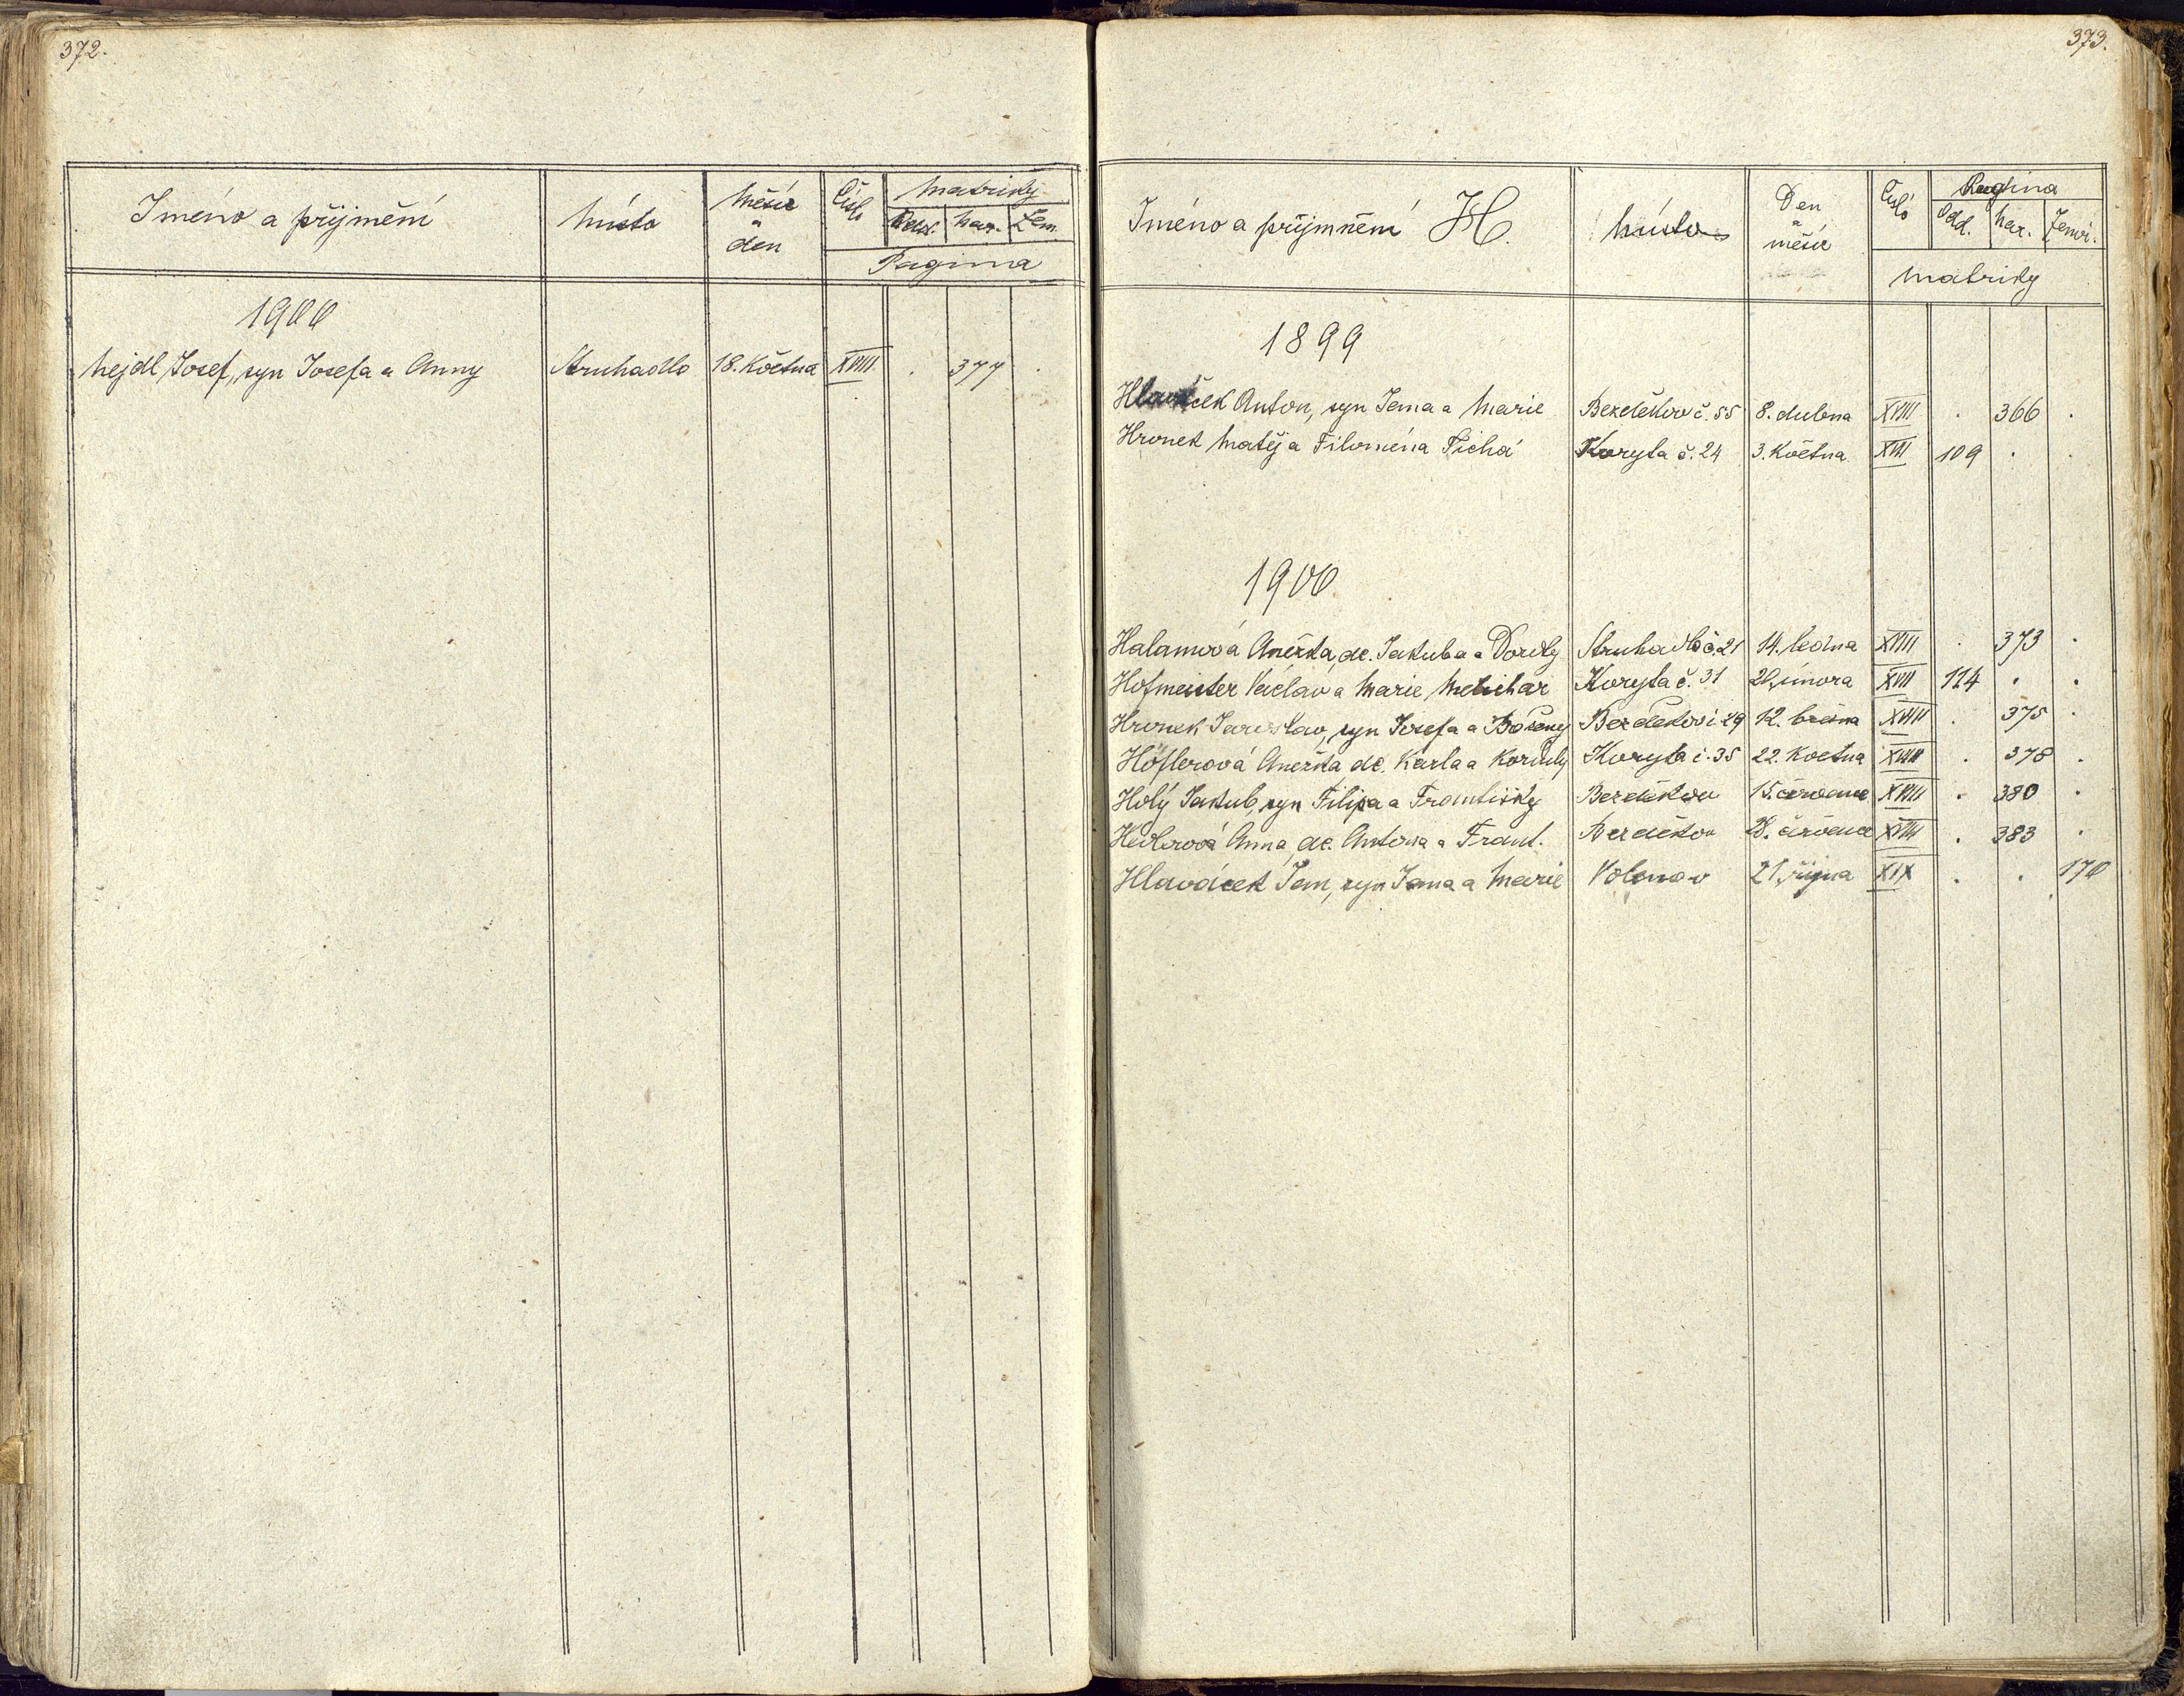 372.
Jméno a příjmění místo měsíc a den Číslo matriky
Odd. nar. Zem.
Pagina
1900
Nejdl Josef, syn Josefa a Anny Struhadlo 18. května XVIII . 377 .
373.
Jméno a příjmnění H. místo Den a měsíc Číslo Pagina
Odd. nar. Zemř.
matriky
1899
Hlaváček Anton, syn Jana a Marie Bezděkov č. 55 8. dubna XVIII . 366 .
Hronek Matěj a Filomena Tichá Koryta č. 24 3. května XVIII 109 . .
1900
Halamová Anežka, dc. Jakuba a Doroty Struhadlo č. 21 14. ledna XVIII . 373 .
Hofmeister Václav a Marie Melichar Koryta č. 31 20. února XVIII 114 . .
Hronek Jaroslav, syn Josefa a Boženy Bezděkov č 29 12. března XVIII . 375 .
Höflerová Anežka dc. Karla a Korduly Koryta č. 35 22. května XVIII . 378 .
Holý Jakub, syn Filipa a Františky Bezděkov 15. června XVIII . 380 .
Anna, dc. Antona a Frant. Bezděkov 28. XVIII . 383 .
Hlaváček Jan, syn Jana a Marie Volenov 21. října XIX . . 170